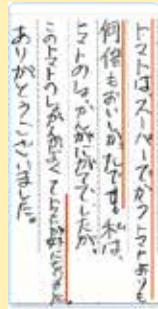 トマトはスーパーでかうトマトよりも
何倍もおいしかたです。私は、
トマトのしゃかんがにがてでしたが、
このトマトのしょかんがよくてトマトが好になりました。
ありがとうございました。